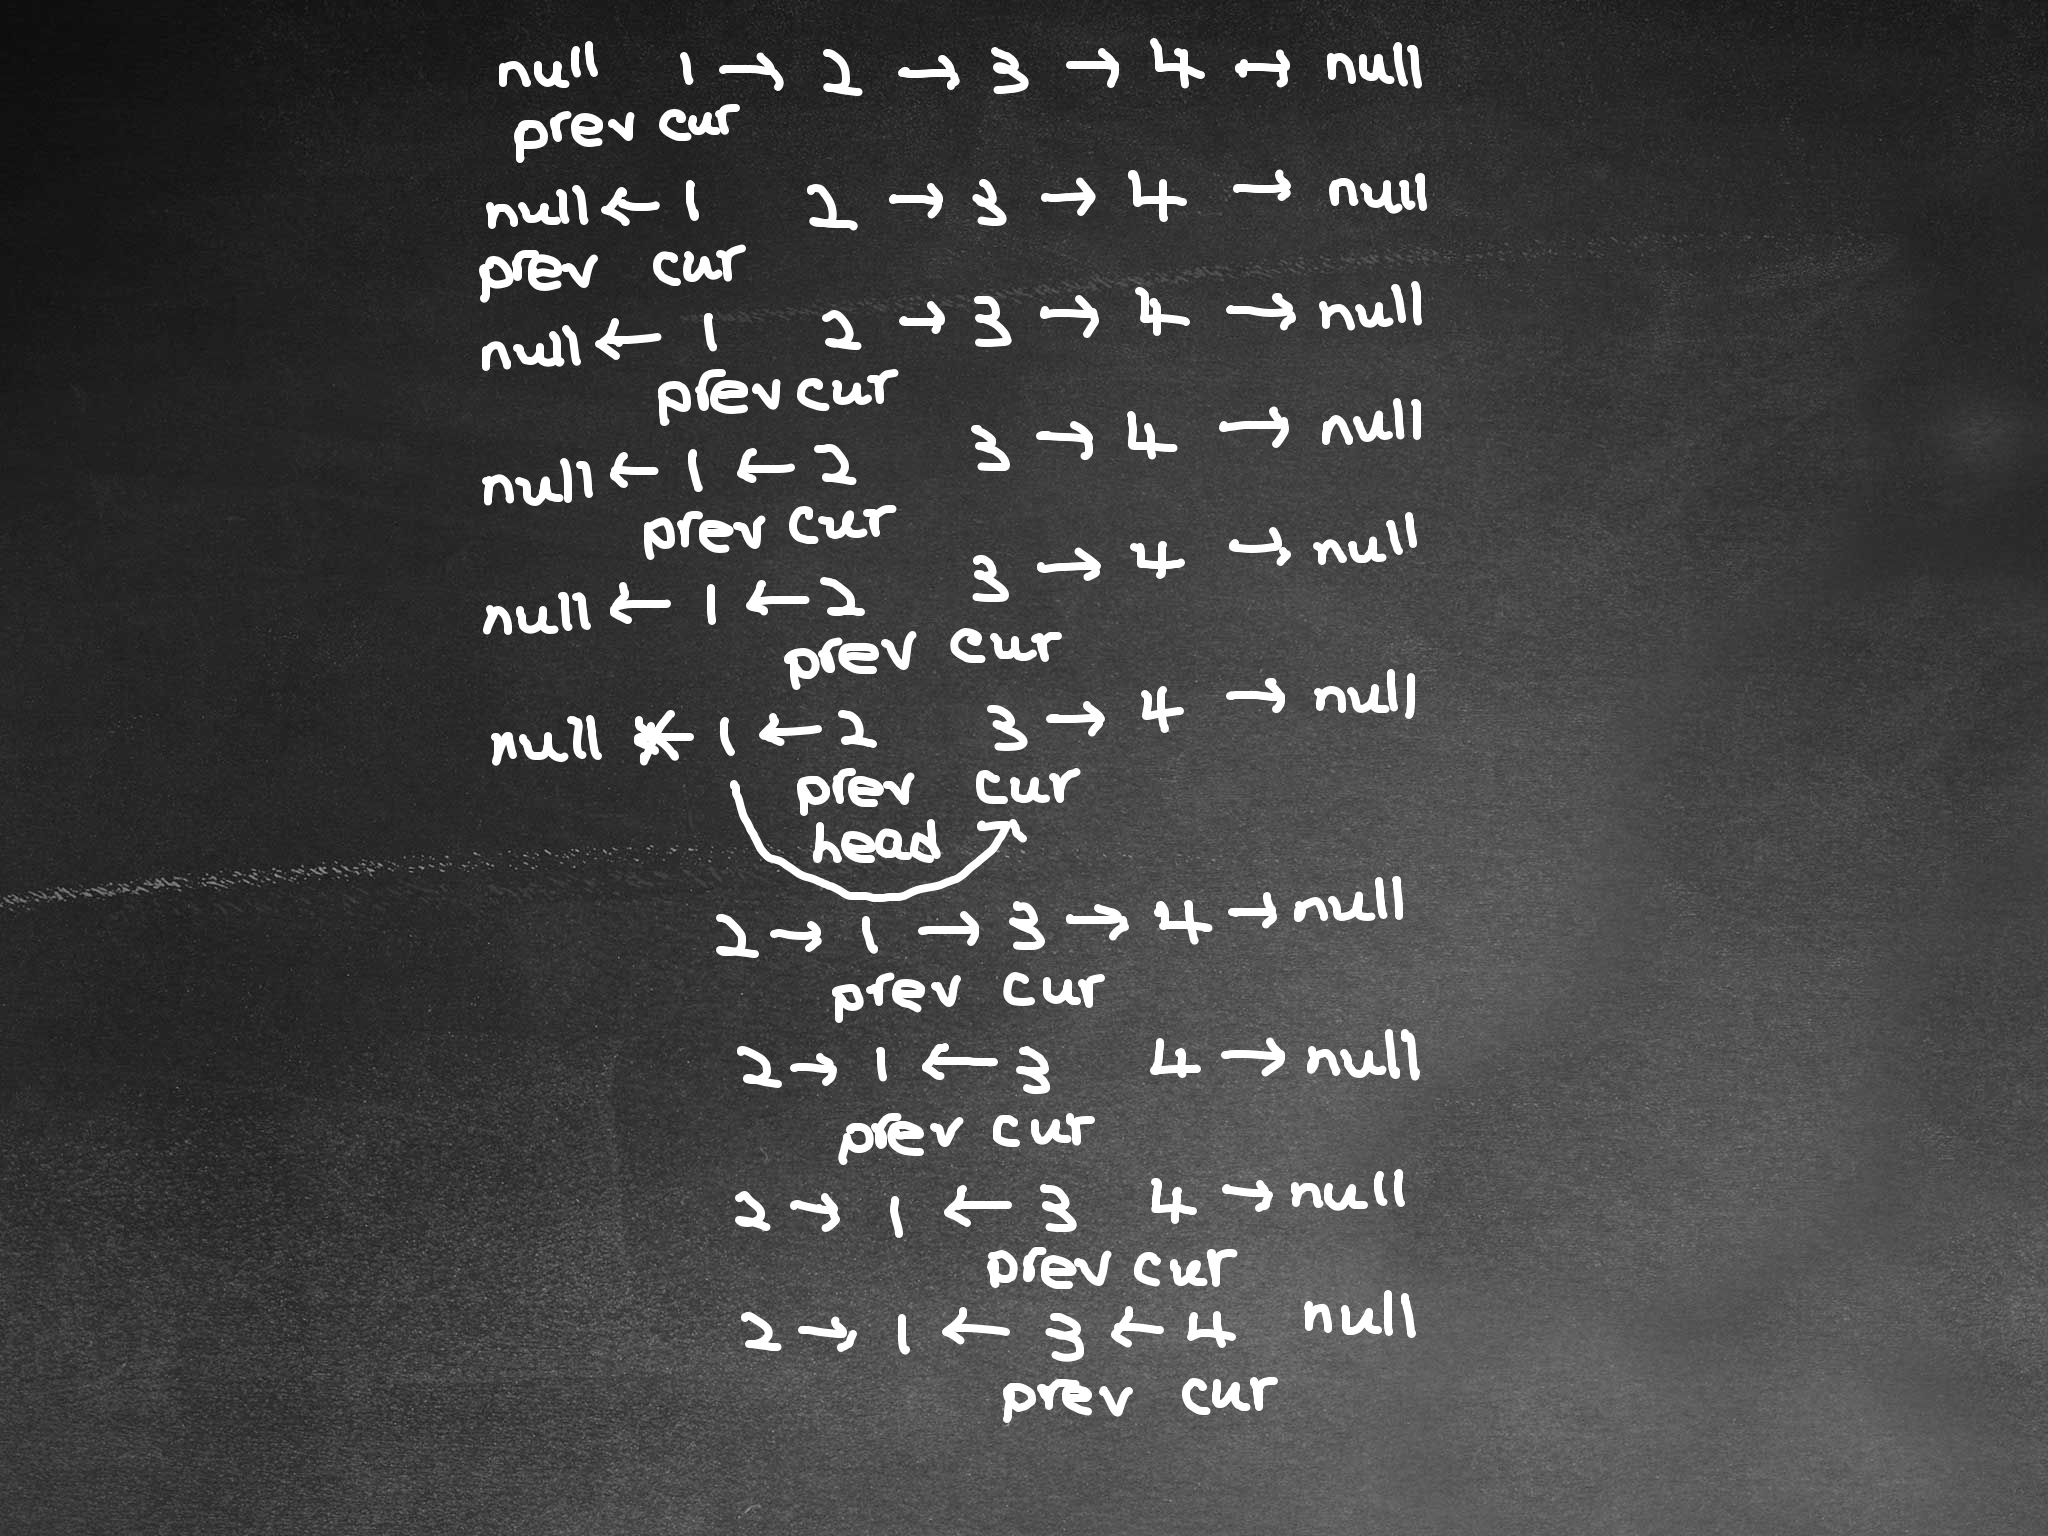 null 1 → 2 → 3 → 4 → null
prev cur
null ← 1 2 → 3 → 4 → null
prev cur
null ← 1 2 → 3 → 4 → null
prev cur
null ← 1 ← 2 3 → 4 → null
prev cur
null ← 1 ← 2 3 → 4 → null
prev cur
null ← 1 ← 2 3 → 4 → null
prev cur
head
2 → 1 → 3 → 4 → null
prev cur
2 → 1 ← 3 4 → null
prev cur
2 → 1 ← 3 4 → null
prev cur
2 → 1 ← 3 ← 4 null
prev cur